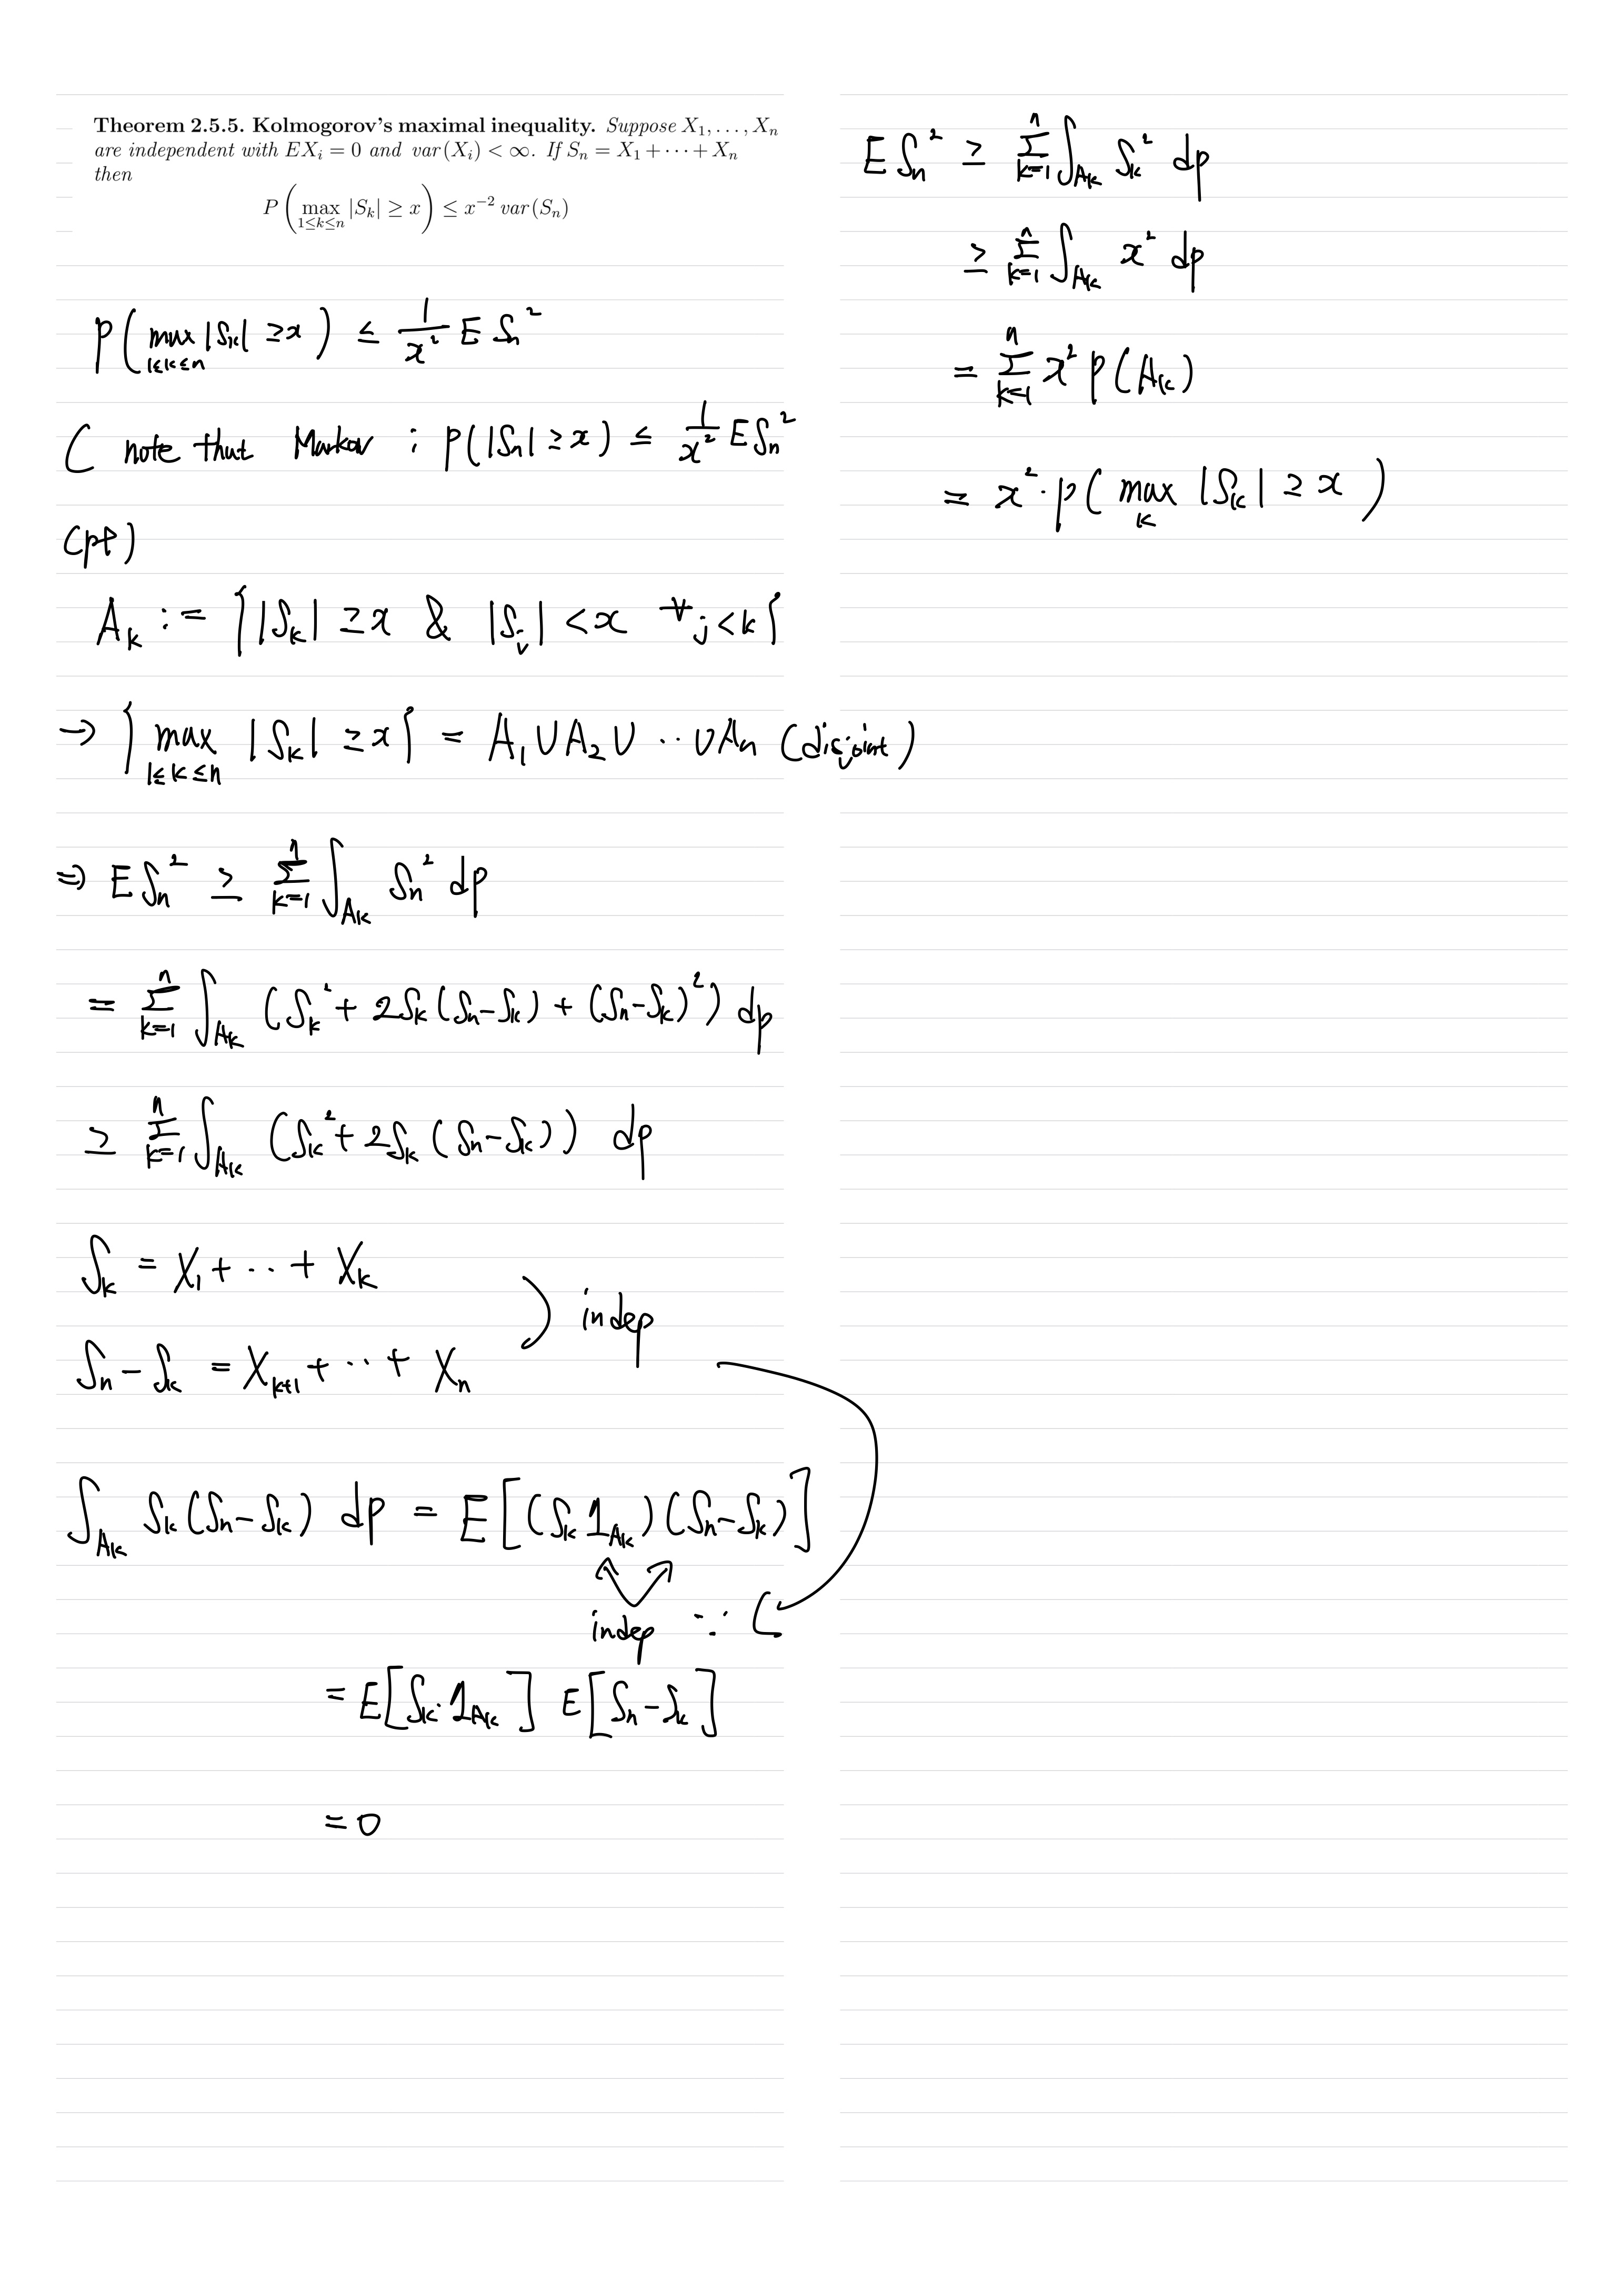 Theorem 2.5.5. Kolmogorov's maximal inequality. Suppose X₁, …, Xₙ
are independent with EXᵢ = 0 and var(Xᵢ) < ∞. If Sₙ = X₁ + ⋯ + Xₙ
then
P( max_{1≤k≤n} |Sₖ| ≥ x ) ≤ x⁻² var(Sₙ)
P( max_{1≤k≤n} |Sₖ| ≥ x ) ≤ 1/x² E Sₙ²
( note that Markov : P(|Sₙ| ≥ x) ≤ 1/x² E Sₙ²
(pf)
Aₖ := { |Sₖ| ≥ x & |Sⱼ| < x ∀j < k }
→ { max_{1≤k≤n} |Sₖ| ≥ x } = A₁ ∪ A₂ ∪ ‥ ∪ Aₙ (disjoint)
⇒ E Sₙ² ≥ ∑_{k=1}^{n} ∫_{Aₖ} Sₙ² dp
= ∑_{k=1}^{n} ∫_{Aₖ} (Sₖ² + 2Sₖ(Sₙ−Sₖ) + (Sₙ−Sₖ)²) dp
≥ ∑_{k=1}^{n} ∫_{Aₖ} (Sₖ² + 2Sₖ(Sₙ−Sₖ)) dp
Sₖ = X₁ + ‥ + Xₖ
) indep
Sₙ − Sₖ = X_{k+1} + ‥ + Xₙ
∫_{Aₖ} Sₖ(Sₙ−Sₖ) dp = E[(Sₖ 1_{Aₖ})(Sₙ−Sₖ)]
indep ∵
= E[Sₖ·1_{Aₖ}] E[Sₙ−Sₖ]
= 0
E Sₙ² ≥ ∑_{k=1}^{n} ∫_{Aₖ} Sₖ² dp
≥ ∑_{k=1}^{n} ∫_{Aₖ} x² dp
= ∑_{k=1}^{n} x² P(Aₖ)
= x² · P( max_k |Sₖ| ≥ x )